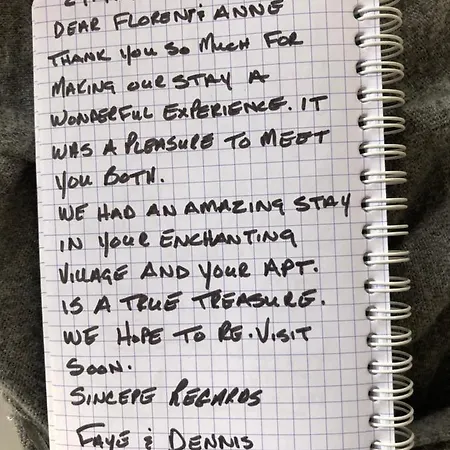 DEAR FLORENT & ANNE
THANK YOU SO MUCH FOR
MAKING OUR STAY A
WONDERFUL EXPERIENCE. IT
WAS A PLEASURE TO MEET
YOU BOTH.
WE HAD AN AMAZING STAY
IN YOUR ENCHANTING
VILLAGE AND YOUR APT.
IS A TRUE TREASURE.
WE HOPE TO RE.VISIT
SOON.
SINCERE REGARDS
FAYE & DENNIS